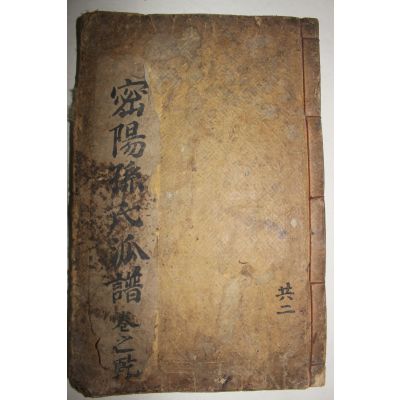 密陽孫氏派譜 卷之乾
共二